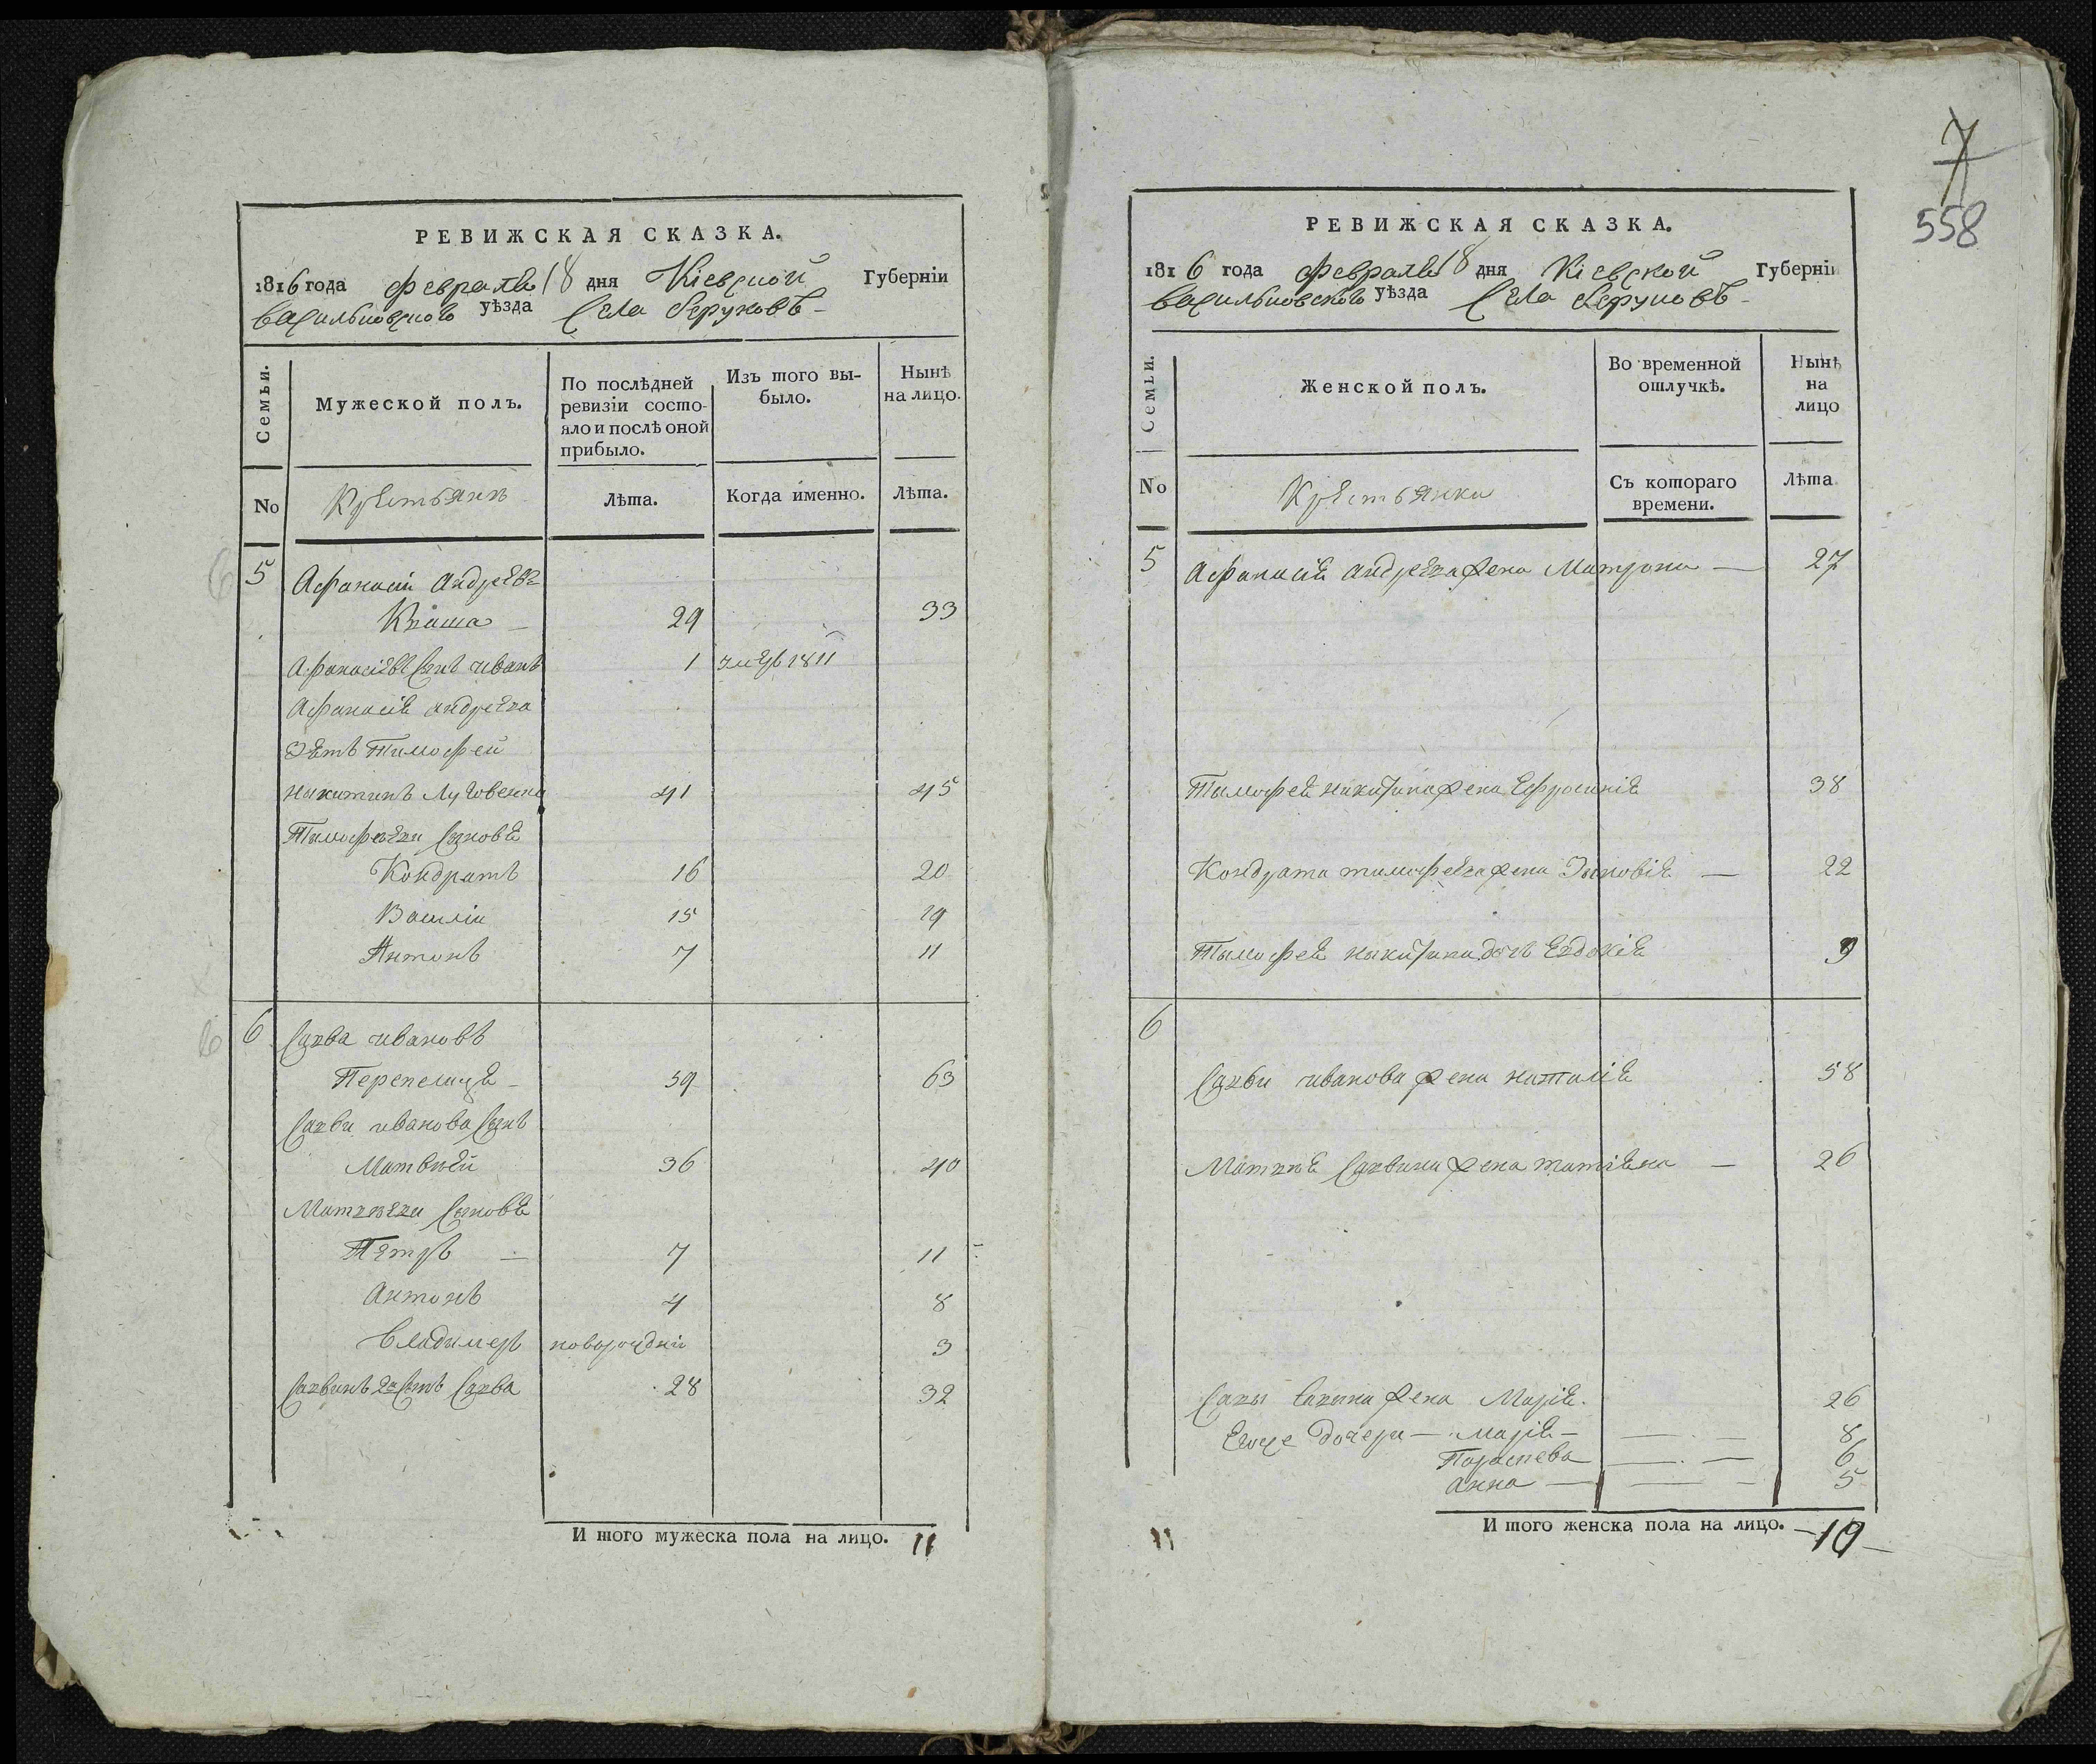 РЕВИЖСКАЯ СКАЗКА.
1816 года февраля 18 дня Кіевской Губерніи
васильковского уѣзда Села
Семьи.
Мужеской полъ.
По послѣдней ревизіи состояло и послѣ оной прибыло.
Изъ того выбыло.
Нынѣ на лицо.
No
Крестьянъ
Лѣта.
Когда именно.
Лѣта.
5 Афанасій Андреевъ
29 33
Афанасіевъ Сынъ иванъ 1 1811
Афанасія андреева
Зять Тимофей
никитинъ 41 45
Тимофеева Сыновя
Кондратъ 16 20
Василій 15 19
Антонъ 7 11
6 Савва ивановъ
Перепелиця 59 63
Савви иванова Сынъ
Матвѣй 36 40
Матвѣева Сыновя
Петръ 7 11
Антонъ 4 8
Владимеръ новорожднй 3
Саввинъ 2й Сынъ Савва 28 32
И того мужеска пола на лицо. 11
7
558
РЕВИЖСКАЯ СКАЗКА.
1816 года февраля 18 дня Кіевской Губерніи
васильковского уѣзда Села
Семьи.
Женской полъ.
Во временной отлучкѣ.
Нынѣ на лицо
No
Крестьянки
Съ котораго времени.
Лѣта
5 Афанасія андреева жена Матрона — 27
Тимофея никитина жена Ефросинія 38
Кондрата тимофеева жена Зиновія — 22
Тимофея никитина дочь Евдокія 9
6
Савви иванова жена наталія 58
Матвѣя Саввина жена татіяна — 26
Савы Савина жена Марія. 26
Егоже дочери — марія — 8
Параскева 6
анна — 5
И того женска пола на лицо. —10—
11